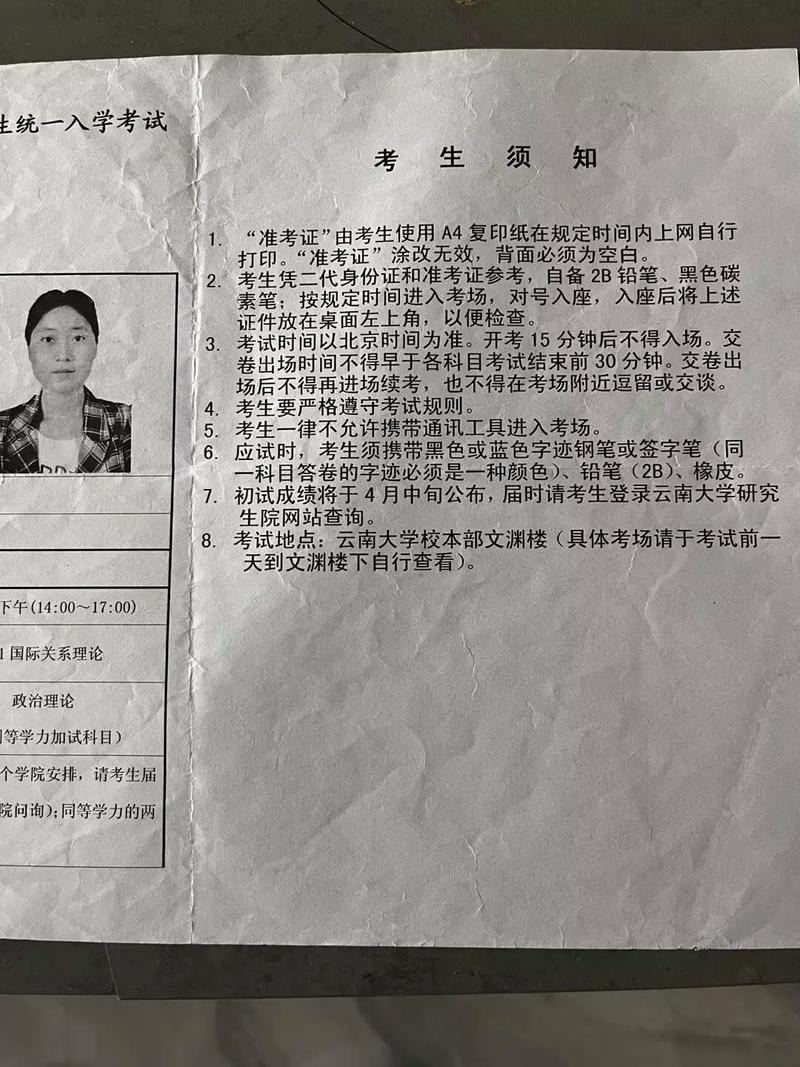 生统一入学考试
下午(14:00～17:00)
1 国际关系理论
政治理论
同等学力加试科目）
个学院安排，请考生届
院问询);同等学力的两
考 生 须 知
1. “准考证”由考生使用 A4 复印纸在规定时间内上网自行
打印。“准考证”涂改无效，背面必须为空白。
2. 考生凭二代身份证和准考证参考，自备 2B 铅笔、黑色碳
素笔；按规定时间进入考场，对号入座，入座后将上述
证件放在桌面左上角，以便检查。
3. 考试时间以北京时间为准。开考 15 分钟后不得入场。交
卷出场时间不得早于各科目考试结束前 30 分钟。交卷出
场后不得再进场续考，也不得在考场附近逗留或交谈。
4. 考生要严格遵守考试规则。
5. 考生一律不允许携带通讯工具进入考场。
6. 应试时，考生须携带黑色或蓝色字迹钢笔或签字笔（同
一科目答卷的字迹必须是一种颜色）、铅笔（2B）、橡皮。
7. 初试成绩将于 4 月中旬公布，届时请考生登录云南大学研究
生院网站查询。
8. 考试地点：云南大学校本部文渊楼（具体考场请于考试前一
天到文渊楼下自行查看）。